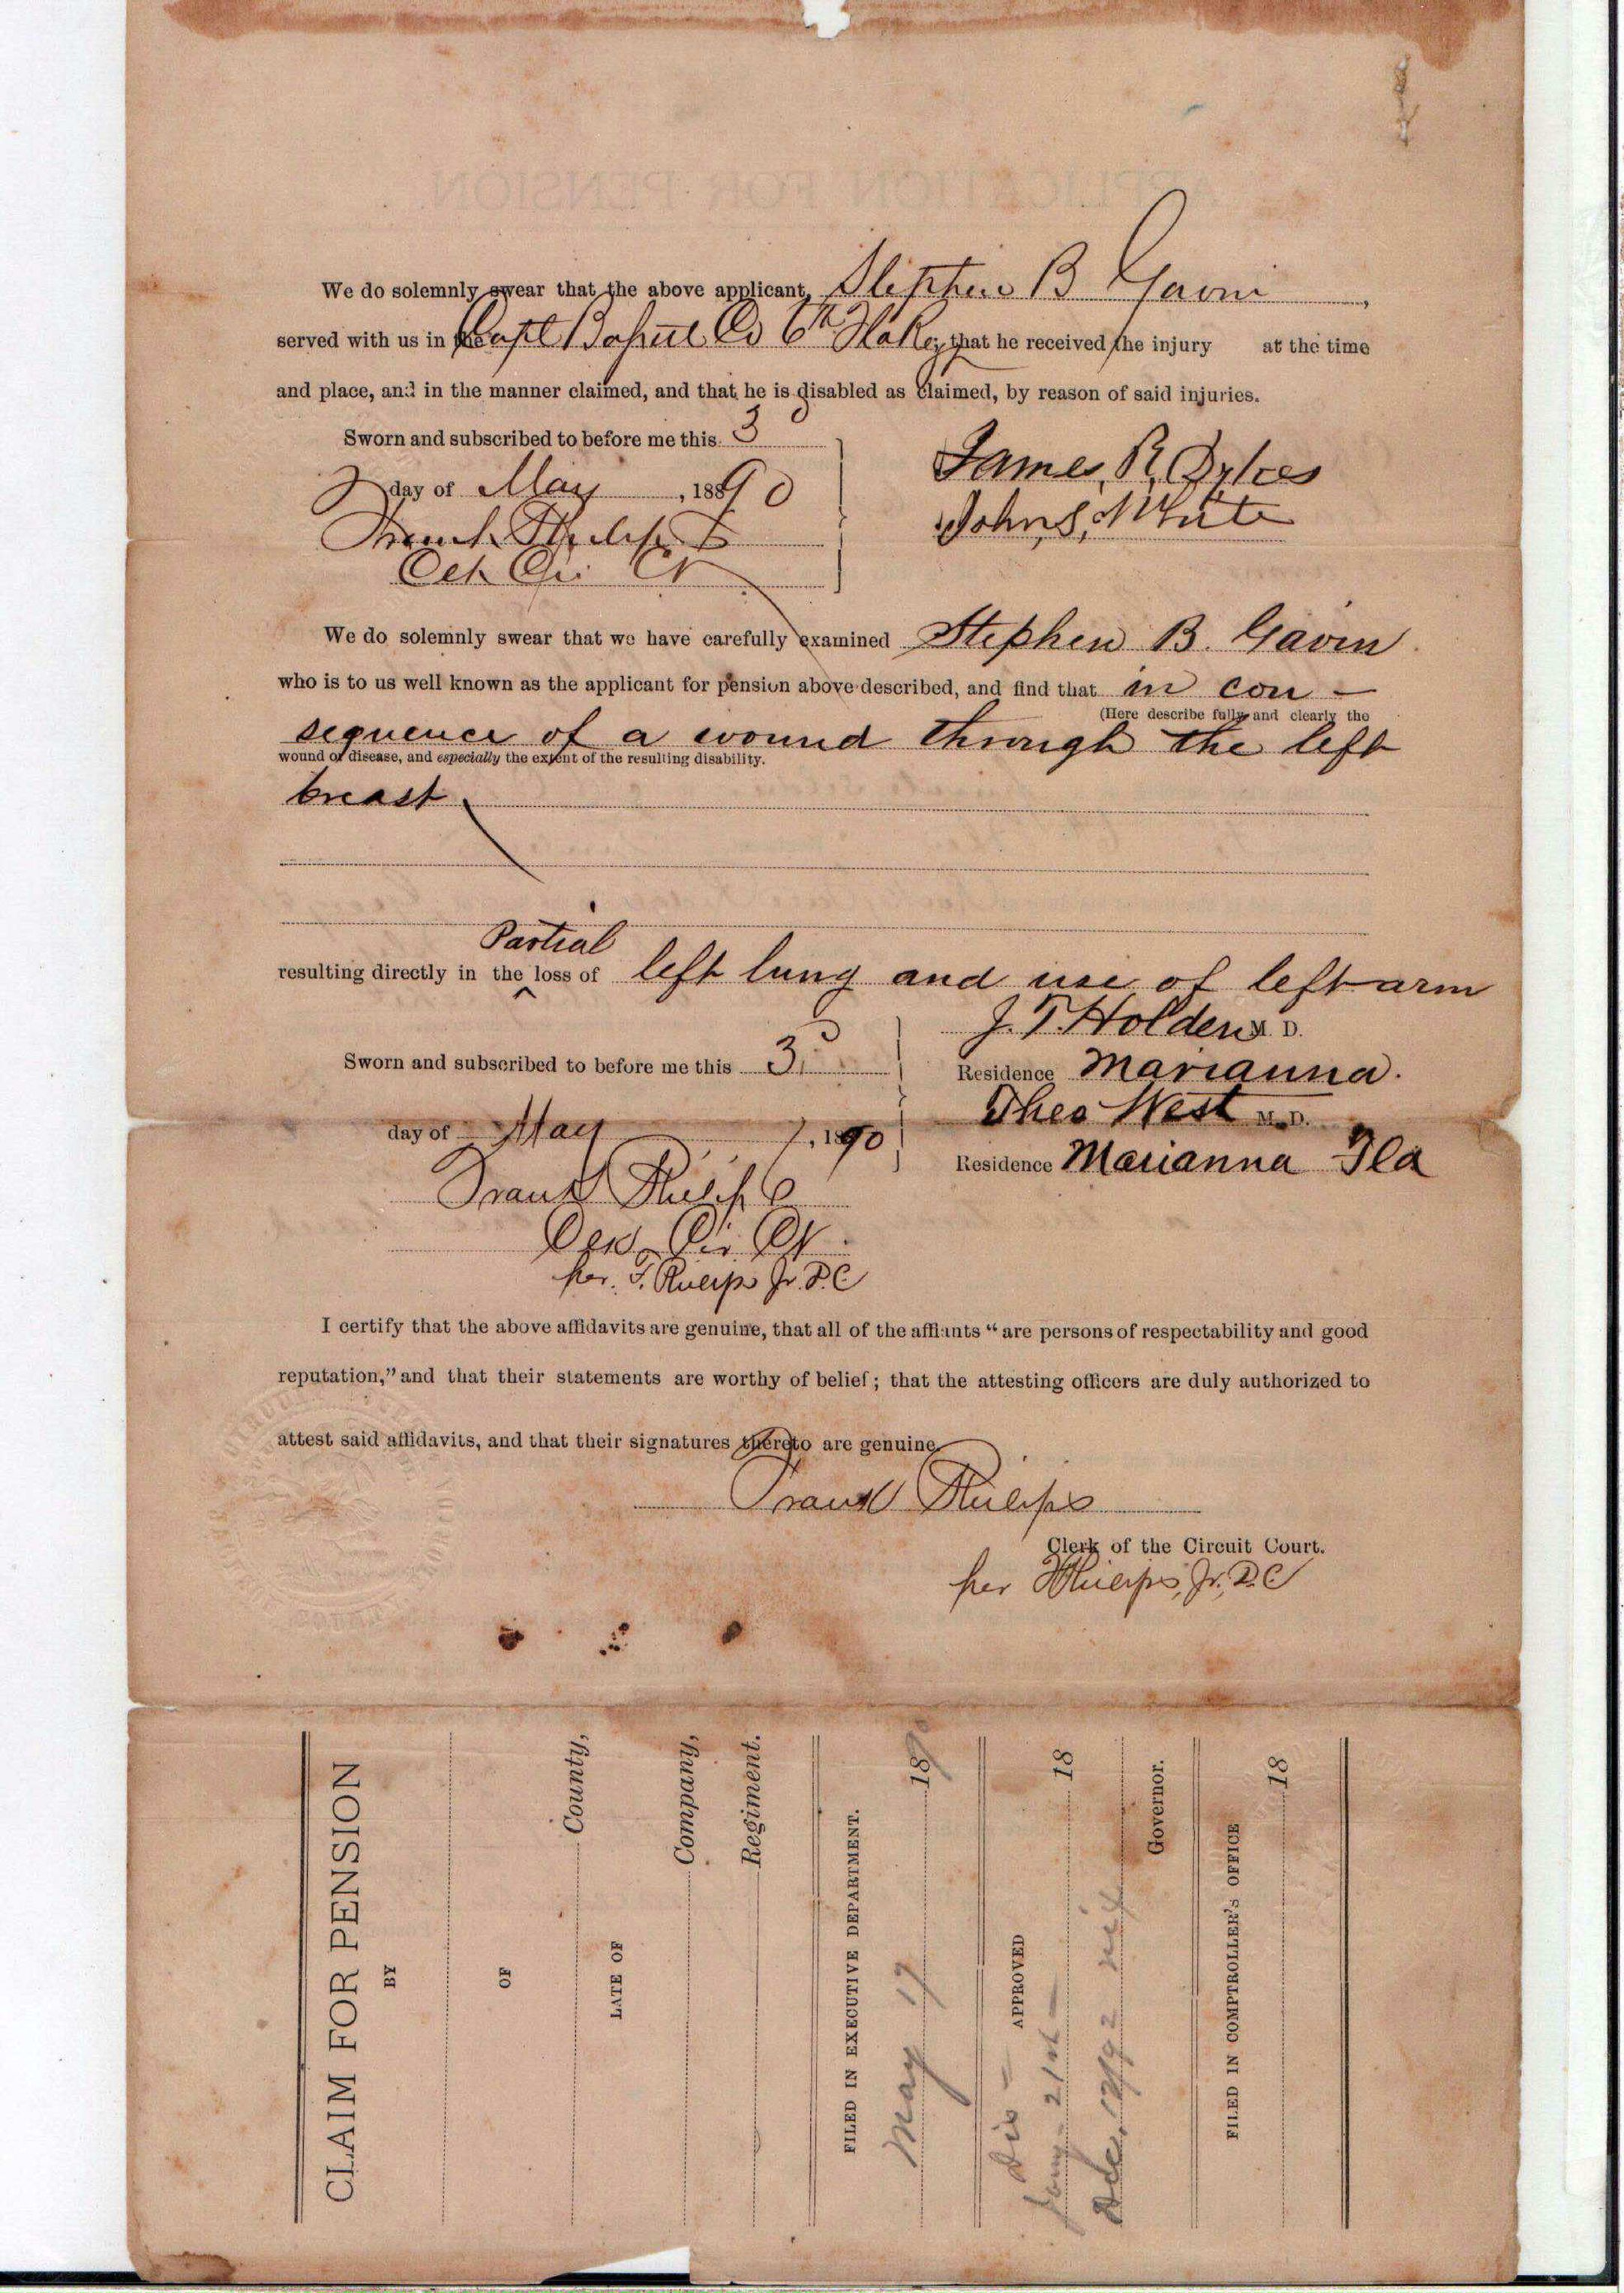 APPLICATION FOR PENSION
We do solemnly swear that the above applicant, Stephen B Gavin,
served with us in the Capt Co 6th Fla Reg; that he received the injury at the time
and place, and in the manner claimed, and that he is disabled as claimed, by reason of said injuries.
Sworn and subscribed to before me this 3d
day of May, 1890
James, R, Dykes
John, S, White
Frank Philips
Clk Cir Ct
We do solemnly swear that we have carefully examined Stephen B. Gavin
who is to us well known as the applicant for pension above described, and find that in con-
(Here describe fully and clearly the
sequence of a wound through the left
wound or disease, and especially the extent of the resulting disability.
breast.
Partial
resulting directly in the ^ loss of left lung and use of left arm
J. T. Holden M. D.
Sworn and subscribed to before me this 3d
Residence Marianna.
Theo West M. D.
day of May, 1890
Residence Marianna Fla
Frank Philips
Clk Cir Ct.
per. F. Philips Jr. D.C
I certify that the above affidavits are genuine, that all of the affiants "are persons of respectability and good
reputation," and that their statements are worthy of belief; that the attesting officers are duly authorized to
attest said affidavits, and that their signatures thereto are genuine.
Frank Philips
Clerk of the Circuit Court.
per F Philips, Jr., D.C
CLAIM FOR PENSION
BY
OF
County,
LATE OF
Company,
Regiment.
FILED IN EXECUTIVE DEPARTMENT.
May 17 1890
APPROVED
Dis-
21st - 18
Dec. 12/92
Governor.
FILED IN COMPTROLLER'S OFFICE
18